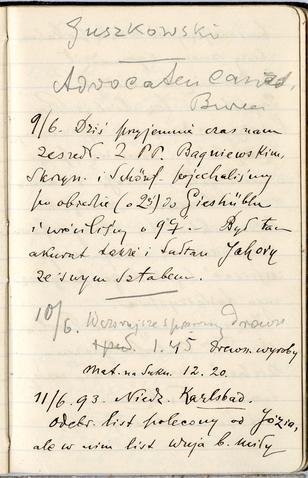 Guszkowski
Advocaten
9/6. Dziś przyjemnie czas nam
zeszedł. Z PP. Bagniewskim,
Skrzyn. i Schönf. pojechaliśmy
po obiedzie (o 2½) do Gieshübla
i wróciliśmy o 9¾. Był tam
akurat także i Sułtan Jahory
ze swym sztabem.
10/6. Wczorajsze sprawy
1.45 Drewn. wyroby
Mat. na Sukn. 12.20.
11/6. 93. Niedz. Karlsbad.
Odebr. list polecony od Józia,
ale w nim list wuja b. miły